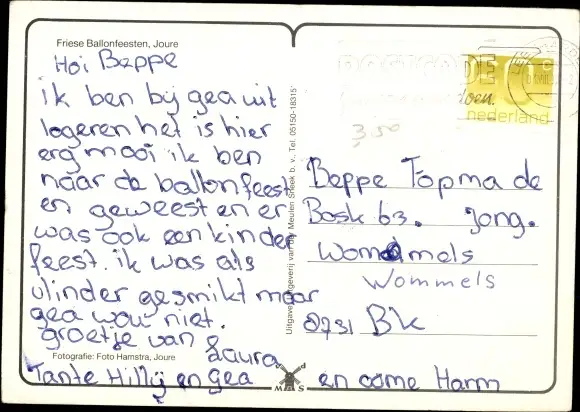 Friese Ballonfeesten, Joure
Hoi Beppe
ik ben bij gea uit
logeren het is hier
erg mooi ik ben
naar de ballonfeest
en geweest en er
was ook een kinder
feest. ik was als
vlinder gesmikt maar
gea wou niet.
groetje van
Laura
Tante Hillij en gea en oome Harm
Fotografie: Foto Hamstra, Joure
Uitgave: Uitgeverij van der Meulen Sneek b.v. Tel. 05150-18315
M S
POSTCODE
doen.
nederland
3,50
Beppe Topma de
Bosk 63. Jong.
Wommels
Wommels
8731 BK